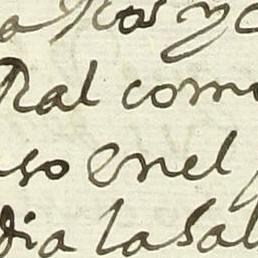 a Ros y c
Ral como
so en el
dia la sal